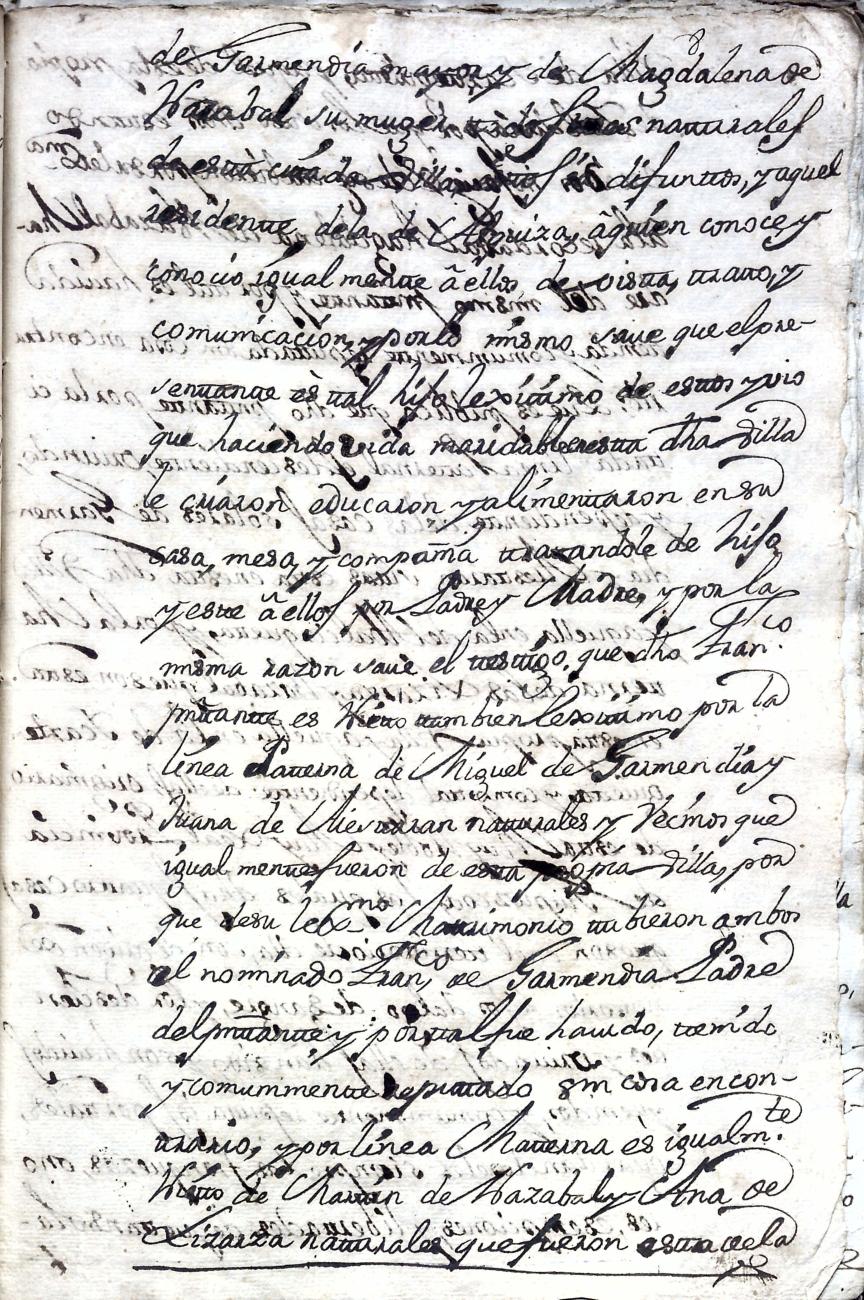 de Garmendia mayor y de Magdalena de
Nazabal su muger naturales
de esta difuntos, y aquel
residente de la de Alquiza, â quien conoce y
conoció igual mente â ellos de vista, trato, y
comunicación, y por lo mismo save que el pre-
sentante ès tal hijo lexitimo de estos y vio
que haciendo vida maridable en esta dha Villa
le criaron educaron y alimentaron en su
casa, mesa, y compañia tratandole de hijo
y este â ellos por Padre y Madre, y por la
misma razon save el testigo, que dho Fran.co
pntante es Nieto tambien lexitimo por la
línea Paterna de Miguel de Garmendia y
Juana de naturales y Vecinos que
igual mente fueron de esta propia Villa, por
que de su lex.mo Matrimonio tubieron ambos
al nominado Fran.co de Garmendia Padre
del pntante y por tal fue havido, tenido
y comunmente reputado sin cosa en con-
trario, y por línea Materna ès igualm.te
Nieto de Martin de Nazabal y Ana de
Lizarza naturales que fueron esta de la